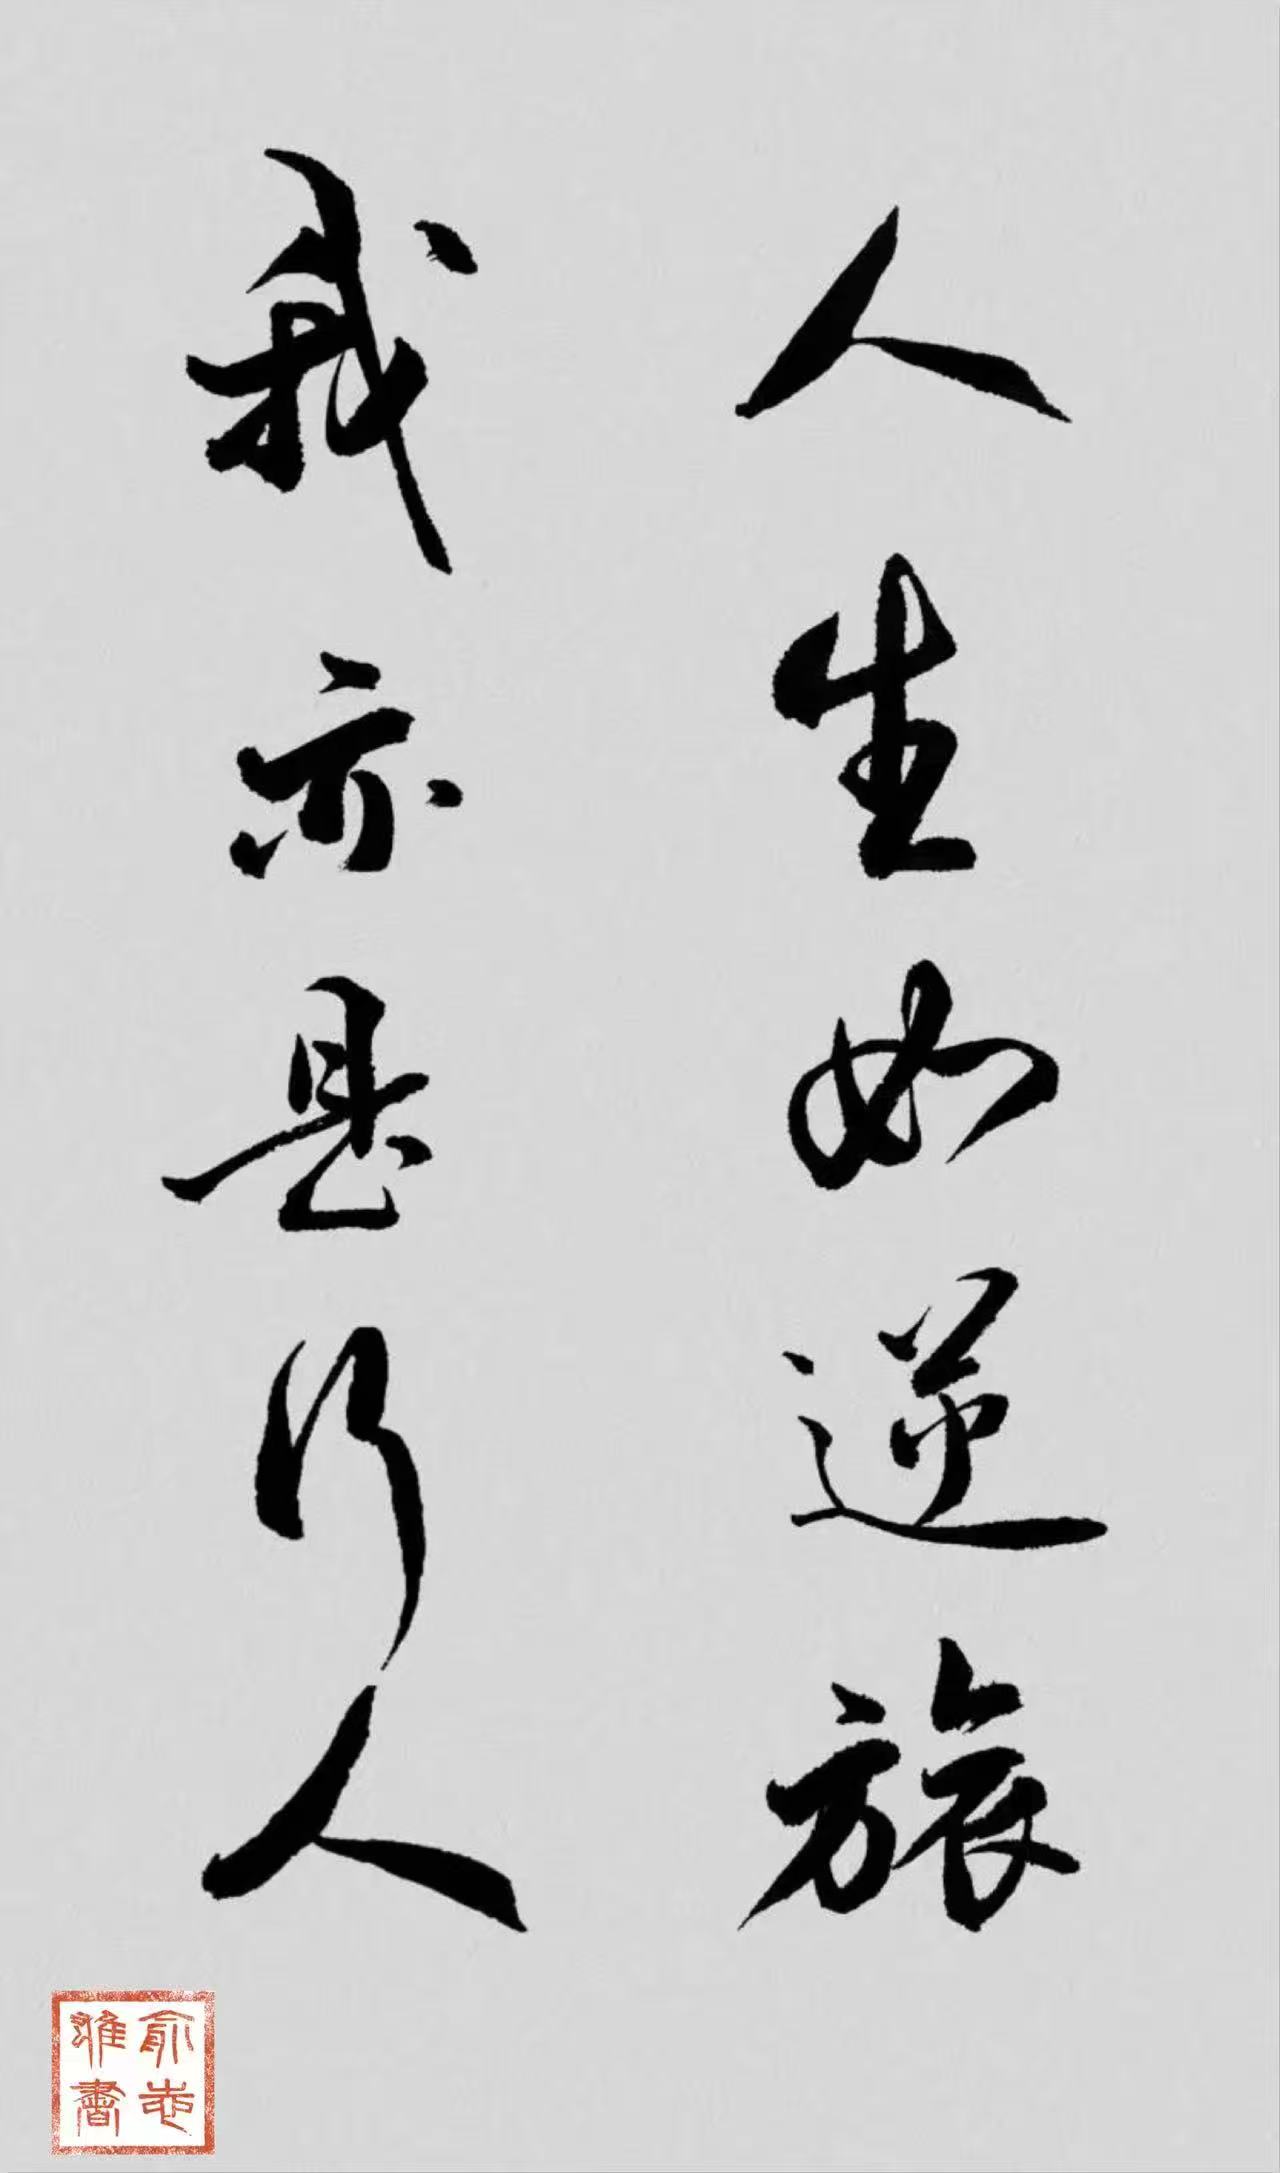 人生如逆旅
我亦是行人
俞志雄書